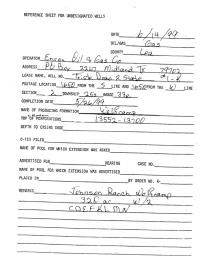 REFERENCE SHEET FOR UNDESIGNATED WELLS
DATE 6/14/99
OIL/GAS Gas
COUNTY Lea
OPERATOR Enron Oil & Gas Co
ADDRESS PO Box 2267 Midland Tx 79702
LEASE NAME, WELL NO. Triste Draw 2 State #1-K
FOOTAGE LOCATION, 1650 FROM THE S LINE AND 1650 FROM THE W LINE
SECTION 2 TOWNSHIP 26s RANGE 33e
COMPLETION DATE 5/26/99
NAME OF PRODUCING FORMATION Wolfcamp
TOP OF PERFORATIONS 13552-13700
DEPTH TO CASING SHOE
C-123 FILED
NAME OF POOL FOR WHICH EXTENSION WAS ASKED
ADVERTISED FOR HEARING CASE NO.
NAME OF POOL FOR WHICH EXTENSION WAS ADVERTISED
PLACED IN BY ORDER NO. R-
REMARKS Johnson Ranch Wolfcamp
320 ac W/2
CDEFKLMN